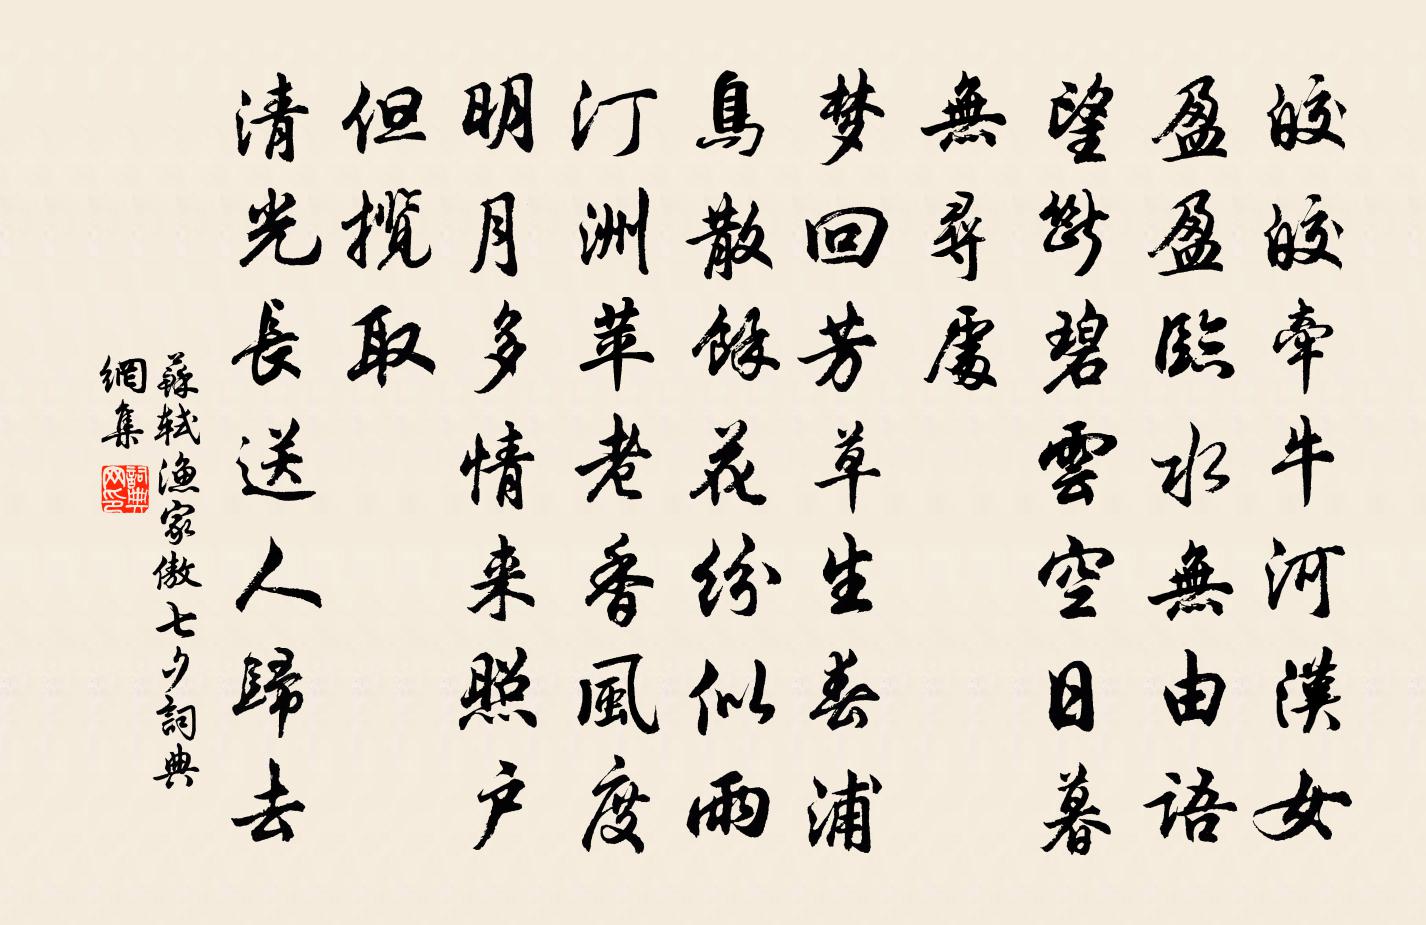 皎皎牽牛河漢女
盈盈臨水無由語
望斷碧雲空日暮
無尋處
梦回芳草生春浦
鳥散餘花紛似雨
汀洲苹老香風度
明月多情来照户
但攬取
清光長送人歸去
蘇轼漁家傲七夕詞典
網集
詞典网印